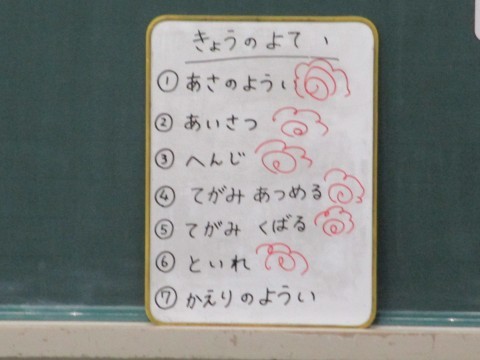 きょうのよてい
① あさのようい
② あいさつ
③ へんじ
④ てがみ あつめる
⑤ てがみ くばる
⑥ といれ
⑦ かえりのようい